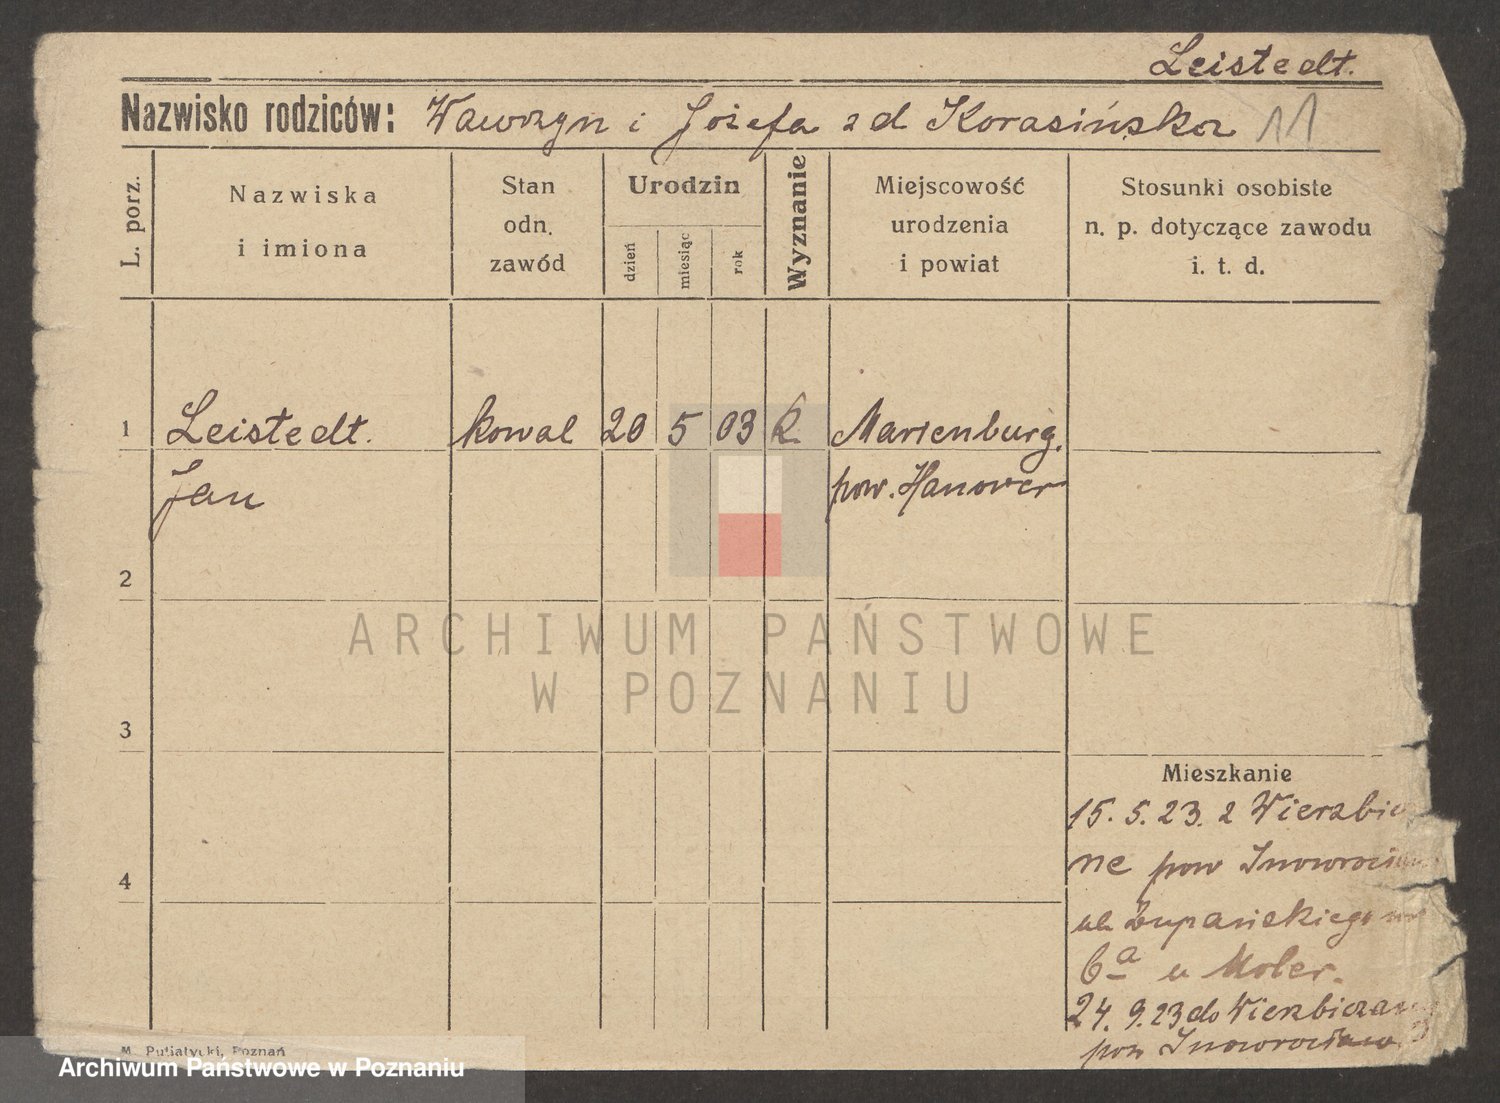 Leistedt.
Nazwisko rodziców: Wawrzyn i Józefa z d Korasińska 11
L. porz.
Nazwiska
i imiona
Stan
odn.
zawód
Urodzin
dzień
miesiąc
rok
Wyznanie
Miejscowość
urodzenia
i powiat
Stosunki osobiste
n. p. dotyczące zawodu
i. t. d.
1 Leistedt. kowal 20 5 03 k. Marienburg.
Jan pow. Hanower
2
ARCHIWUM PAŃSTWOWE
W POZNANIU
3
Mieszkanie
15. 5. 23. z Wierzbicz
ne pow Inowrocław
ul. Żupańskiego
6a u Moler.
4
24. 9. 23 do Wierzbiczany
pow Inowrocław
M. Putiatycki, Poznań
Archiwum Państwowe w Poznaniu